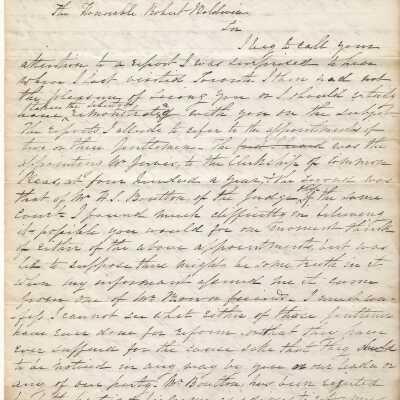 The Honorable Robert Baldwin
Sir
I beg to call your
attention to a report I was surprised to hear
when I last visited Toronto I then had not
the pleasure of seeing you or I should
have taken the liberty remonstrating with you on the subject
The reports I allude to refer to the appointments of
two or three gentlemen. The was the
appointing Mr to the Clerkship of Common
Pleas, at four hundred a year, & the second was
that of Mr H. J. Boulton of the Judgeship of the same
Court I found much difficulty in believing
it possible you would for one moment think
of either of the above appointments, but was
led to suppose there might be some truth in it
when my informant assured me it
from one of friends. I must
I cannot see what either of those gentlemen
have ever done for reform or that they have
ever suffered for the cause sake that they should
to be noticed in any way by you or our leader or
any of our party. Mr Boulton has been rejected